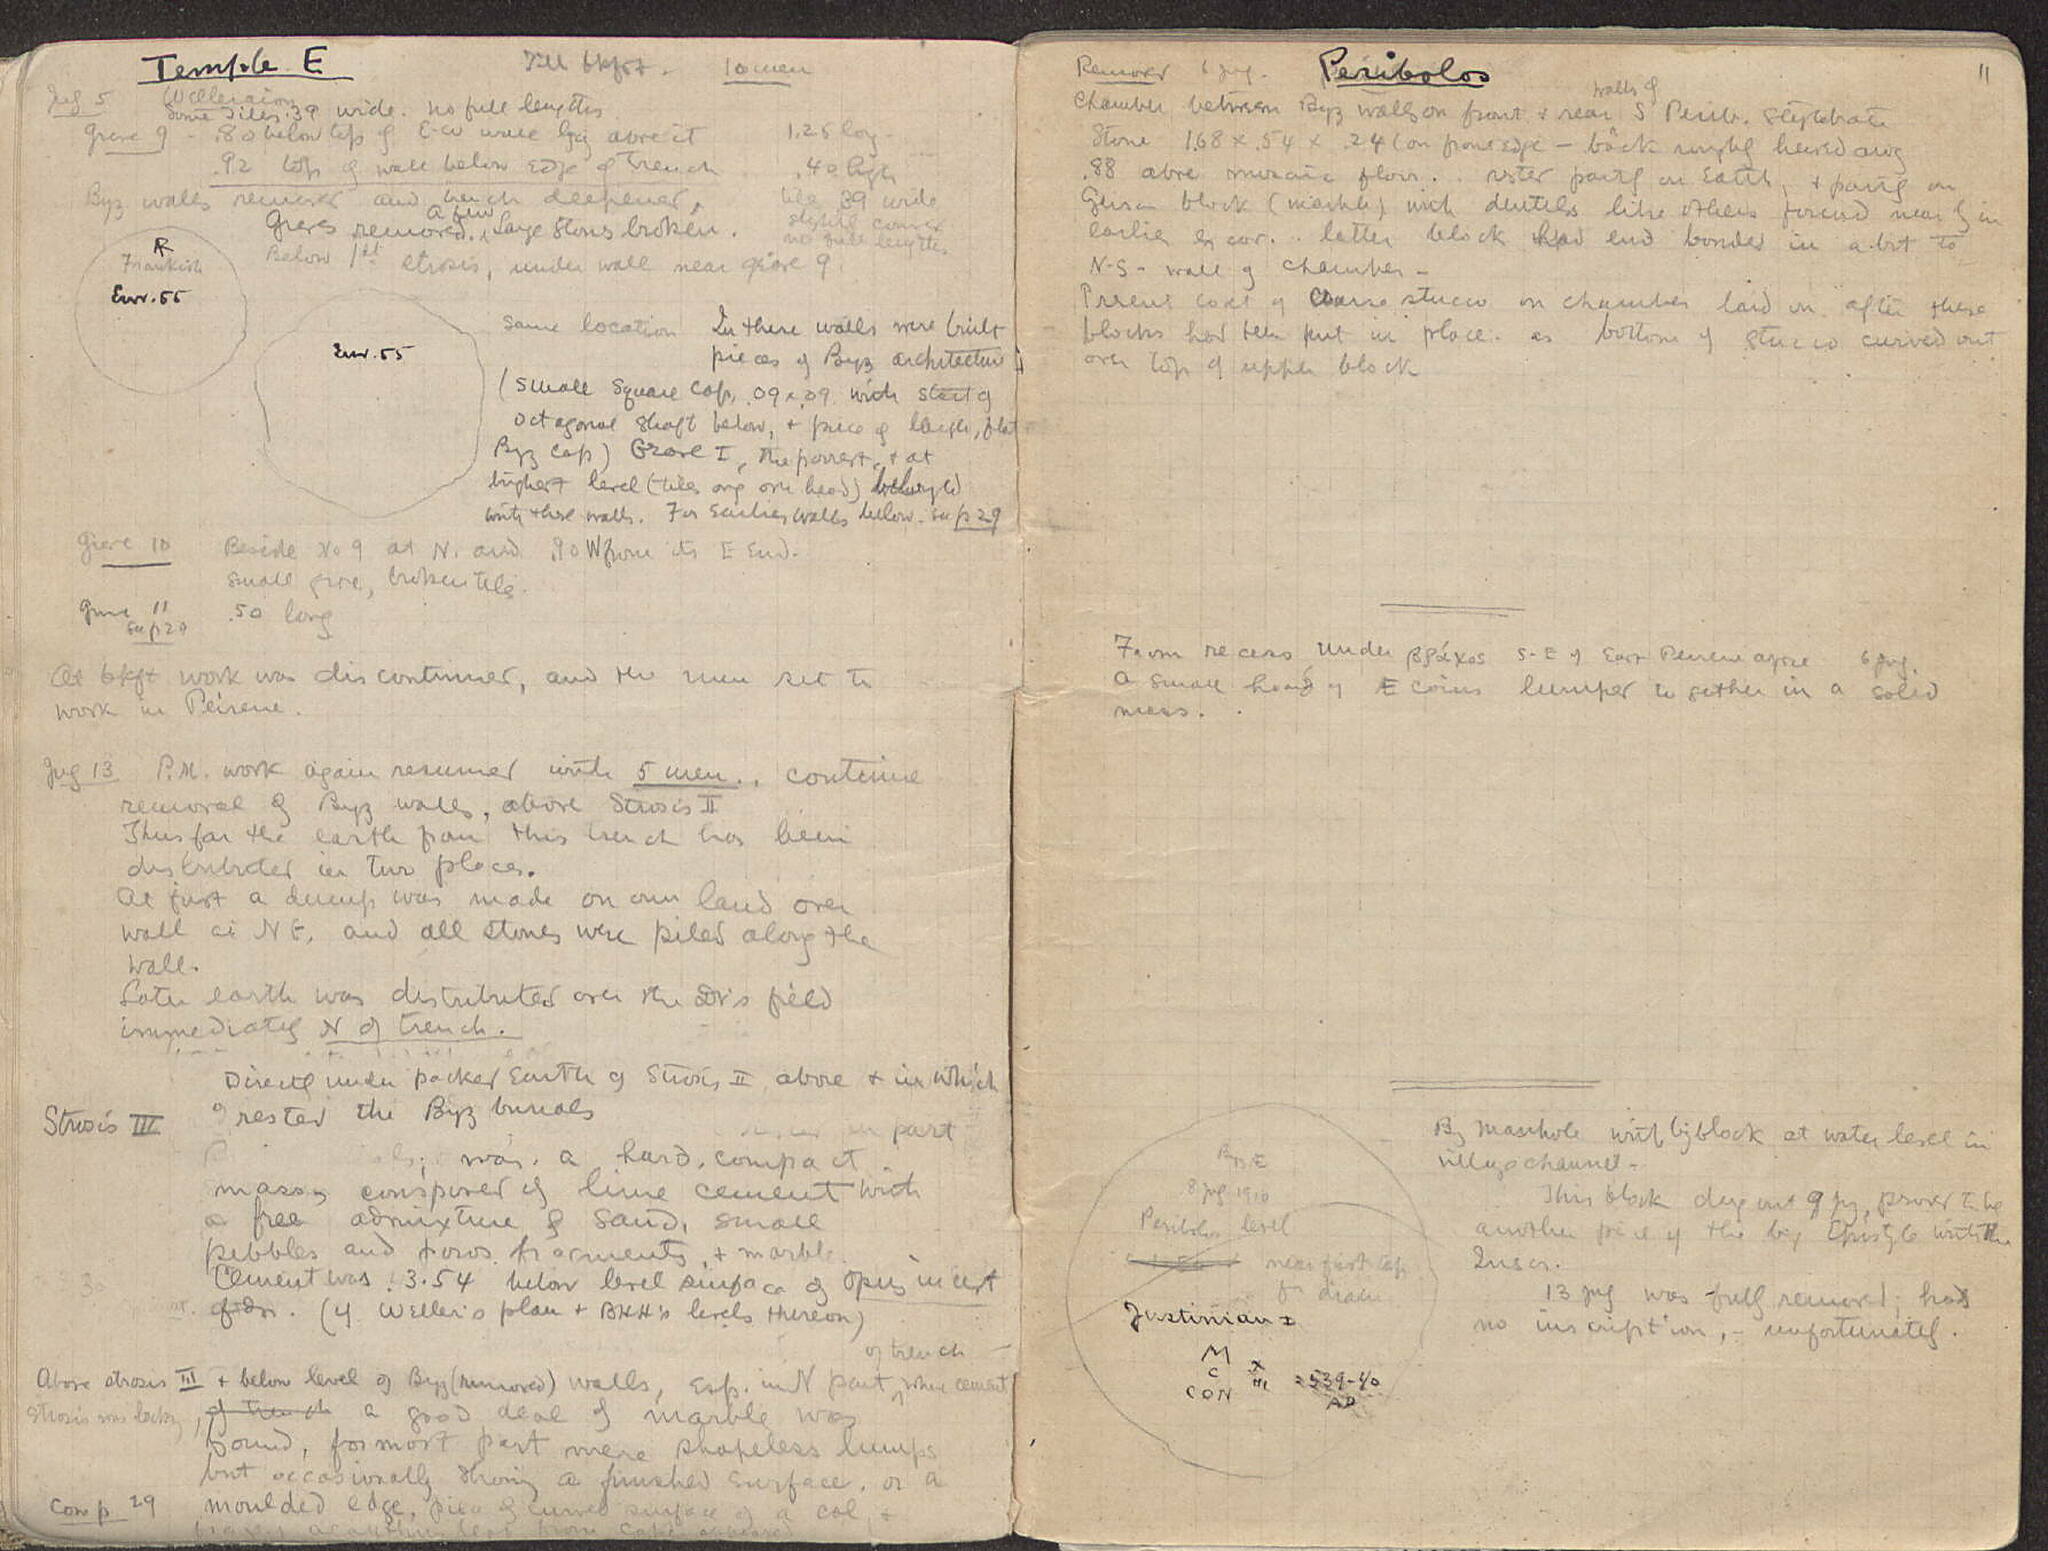 Temple E Till bkfst. 10 men
(Welleraion
Some tiles .39 wide. no full lengths
Grave 9 - .80 below top of E-W wall lying above it 1.25 long
.92 top of wall below edge of trench .40 high
Byz walls removed and trench deepened. tile .39 wide
Graves removed. A few large stones broken. slightly convex
no full lengths
Below 1st strosis, under wall near grave 9.
Æ
Frankish
Env. 55
Env. 55
same location In these walls were built
pieces of Byz architecture
(small square cap, .09 x .09 with start of
octagonal shaft below, + piece of large, flat
Byz cap) Grave I, the poorest, + at
highest level (tiles only over head) belonged
with these walls. For earlier walls below see p 29
Grave 10 Beside No 9 at N. and .90 W from its E End.
small grave, broken tiles.
Grave 11 .50 long
see p 29
At bkfst work was discontinued, and the men set to
work in Peirene.
P.M. work again resumed with 5 men., continue
removal of Byz walls, above Strosis II
Thus far the earth from this trench has been
distributed in two places.
At first a dump was made on our land over
wall at NE, and all stones were piled along the
wall.
Later earth was distributed over the Dr's field
immediately N of trench.
Directly under packed earth of Strosis II above + in which
Strosis III rested the Byz burials
part
was a hard, compact
mass, composed of lime cement with
a free admixture of sand, small
pebbles and poros fragments, + marble.
Cement was 3.54 below level surface of opus incert
(cf Weller's plan + BHH's levels thereon)
of trench
Above strosis III + below level of Byz (removed) walls, esp. in N part, where cement
strosis was lacking, of trench a good deal of marble was
found, for most part mere shapeless lumps
but occasionally showing a finished surface, or a
Comp 29 moulded edge, piece of curved surface of a col, +
11
Removed Peribolos
walls of
Chamber between Byz walls on front + rear S Perib. stylobate
Stone 1.68 x .54 x .24 (on front edge - back roughly hewed away
.88 above mosaic floor. rested partly on earth, + partly on
Geison block (marble) with dentils like others found nearly in
earlier excav. latter block had end bonded in a bit to
N-S- wall of chamber -
Present coat of coarse stucco on chamber laid on after these
blocks had been put in place. as bottom of stucco curved out
over top of upper block
From recess under βράχος S-E of East Peirene apse
a small hoard of Æ coins lumped together in a solid
mass.
By manhole with big block at water level in
village channel -
This block dug out proved to be
another piece of the big Epistyle with the
Inscr.
13 was fully removed; had
no inscription, - unfortunately.
Byz Æ
1910
Peribolos level
near first cap
for drain
Justinian I
M X
C III = 539-40
CON AD